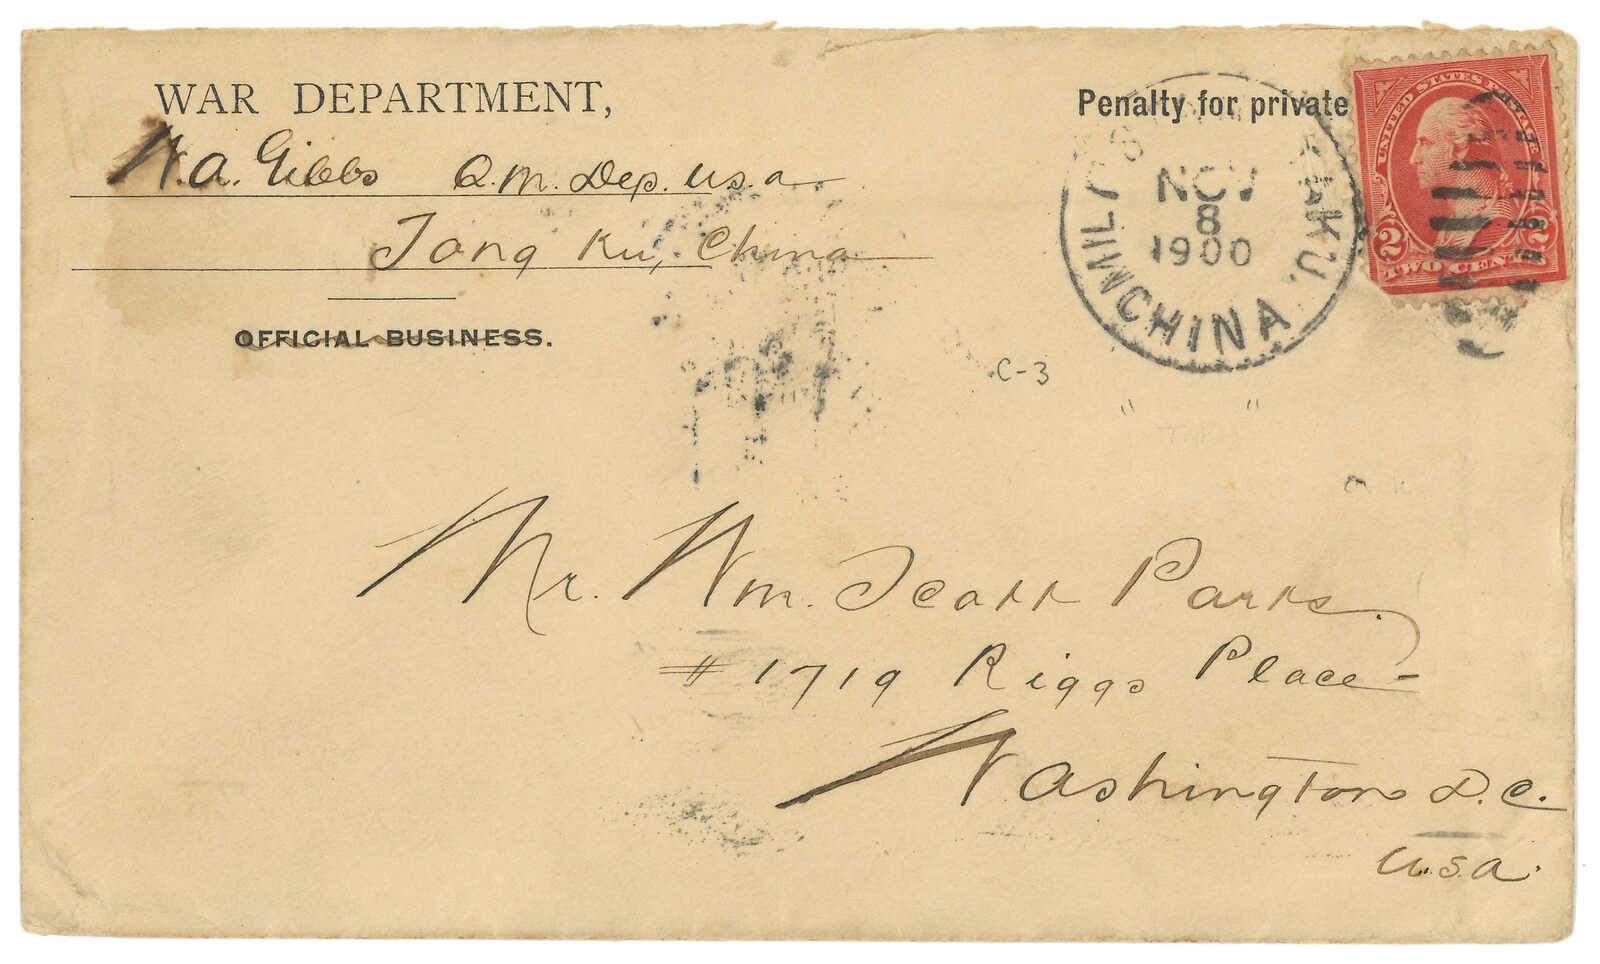 WAR DEPARTMENT,
W.A. Gibbs Q.M. Dep. U.S.A
Tong Ku, China
OFFICIAL BUSINESS.
Penalty for private
MIL. CHINA.
NOV
8
1900
UNITED STATES POSTAGE
2 2
TWO CENTS
C-3
Mr. Wm. Scott Parks.
# 1719 Riggs Place-
Washington D.C.
U.S.A.